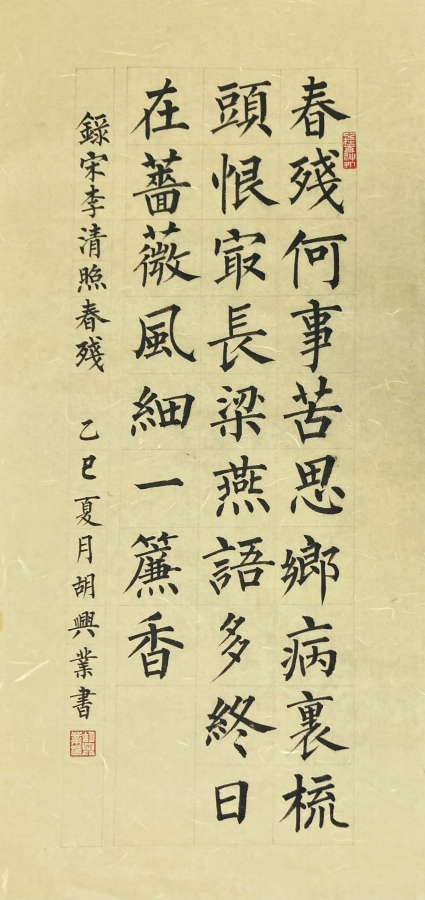 春殘何事苦思鄉病裏梳
頭恨㝡長梁燕語多終日
在薔薇風細一簾香
錄宋李清照春殘 乙巳夏月胡興業書